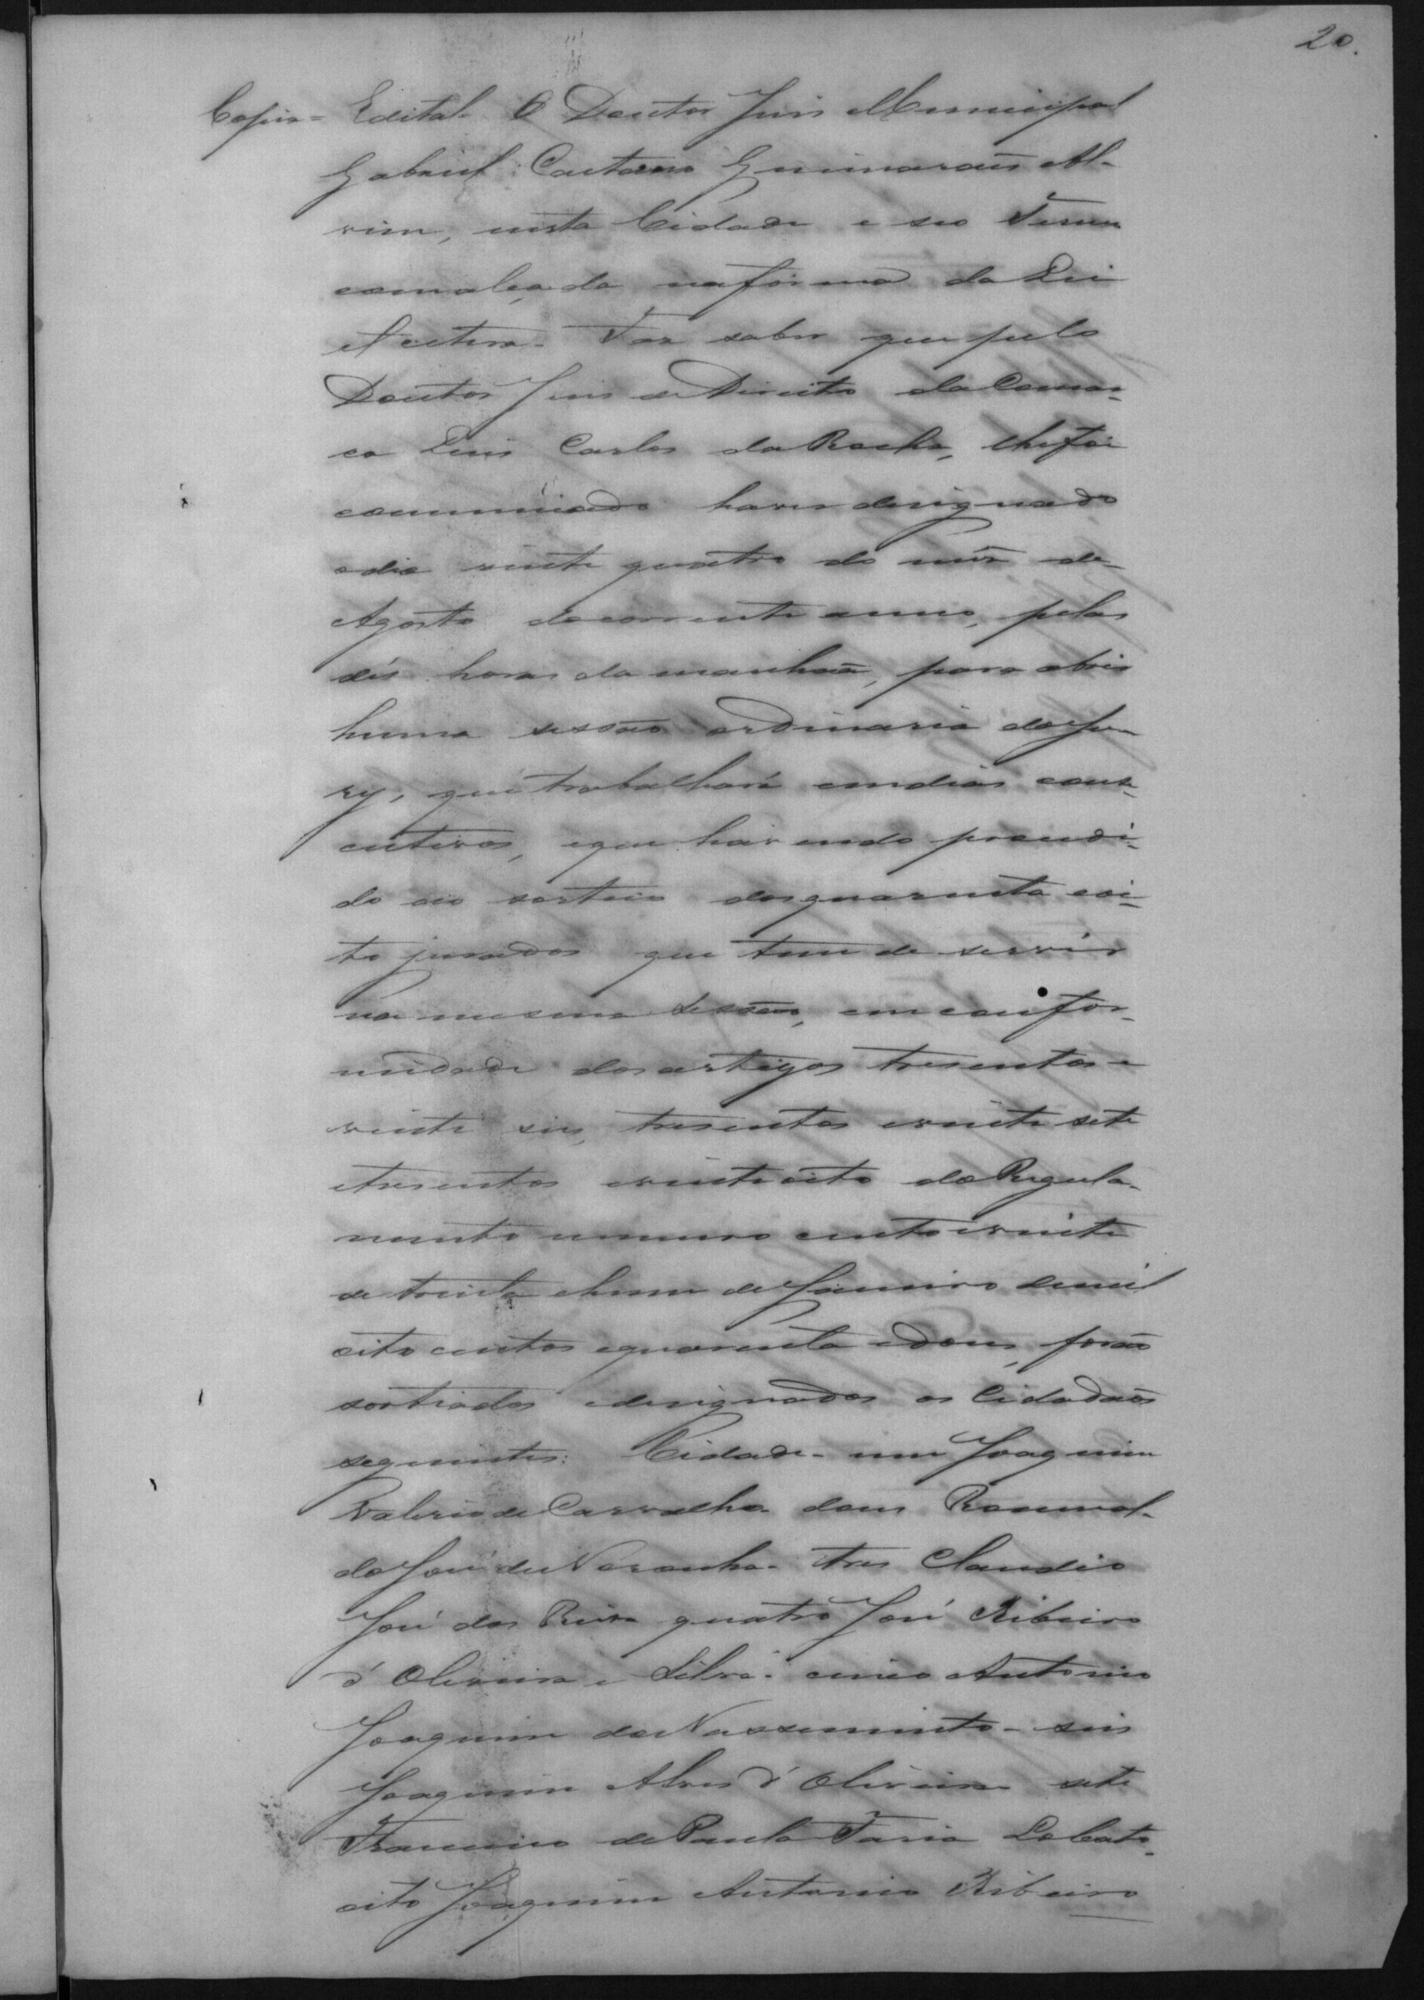 20.
Copia = Edital. O Doutor Juis Municipal
Gabriel Caetano Guimarães Al-
vim, nesta Cidade e seo Termo
com alçada na forma da Lei
etcetera. Faz saber que pelo
Doutor Juis de Direito da Comar-
ca Luis Carlos da Rocha, lhe foi
communicado haver designado
o dia vinte quatro do mês de
Agosto do corrente anno, pelas
dés horas da manhaã, para abrir
huma sessão ordinaria do Ju-
ry, que trabalhará em dias conse-
cutivos, e que havendo procedi-
do ao sorteio dos quarenta e oi-
to jurados que tem de servir
na mesma Sessão, em confor-
midade dos artigos tresentos e
vinte seis, tresentos e vinte sete
e tresentos e vinte oito do Regula-
mento numero cento e vinte
de trinta e hum de Janeiro de mil
oito centos e quarenta e dous, forão
sortiados e designados os Cidadãos
seguintes: Cidade - um Joaquim
Valerio de Carvalho - dous Romual-
do José de Noronha - tres Claudio
José dos Reis - quatro José Ribeiro
d'Oliveira e Silva - cinco Antonio
Joaquim do Nassimento - seis
Joaquim Alves d'Oliveira sete
Francisco de Paula Faria Lobato -
oito Joaquim Antonio Ribeiro